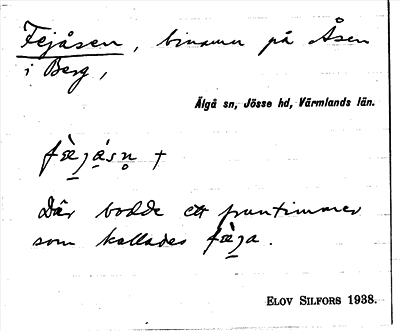 Fejåsen, binamn på Åsen
i Berg,
Älgå sn, Jösse hd, Värmlands län.
fæ̀jásn̥ †
Där bodde ett fruntimmer
som kallades fæ̀ja.
ELOV SILFORS 1938.